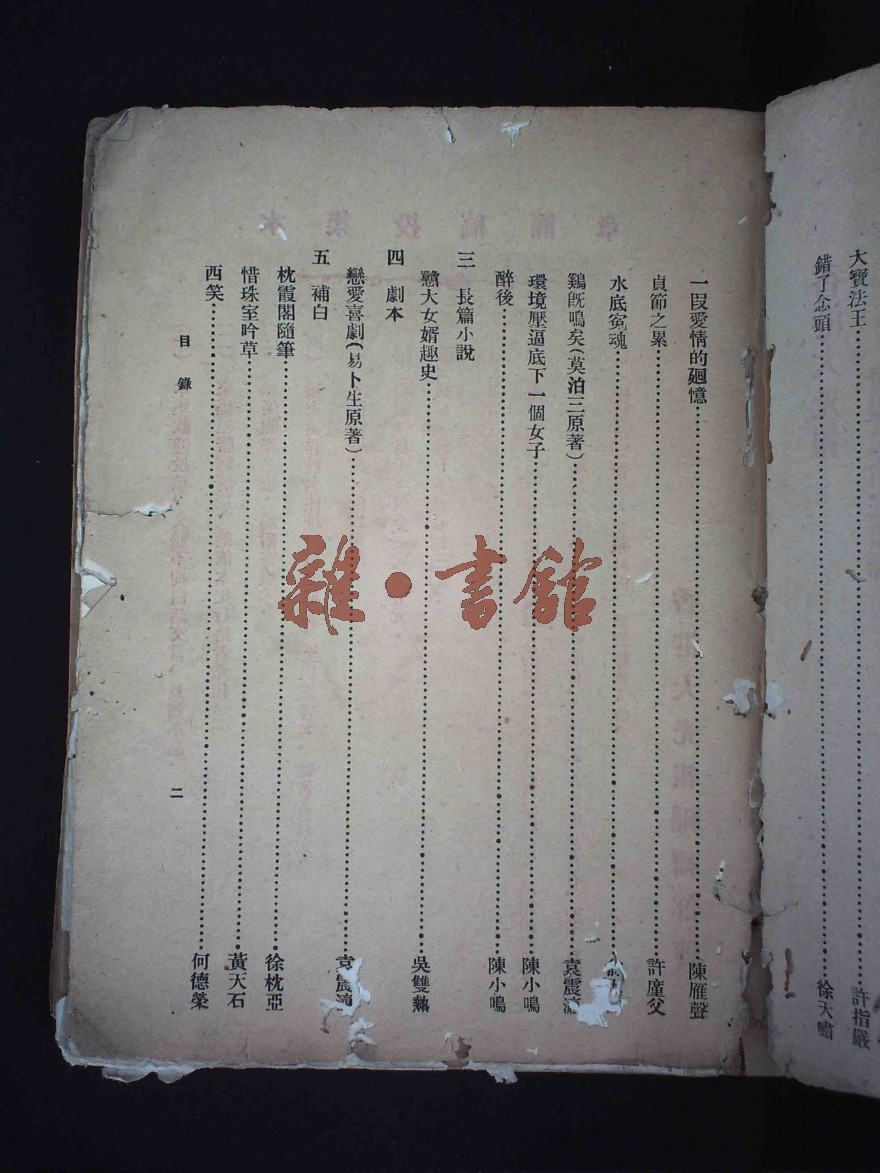 大寶法王 許指嚴
錯了念頭 徐天嘯
一段愛情的廻憶 陳雁聲
貞節之累 許廑父
水底冤魂
鷄旣鳴矣(莫泊三原著) 袁震瀛
環境壓逼底下一個女子 陳小鳴
醉後 陳小鳴
三 長篇小說
戇大女婿趣史 吳雙熱
四 劇本
戀愛喜劇(易卜生原著) 袁震瀛
五 補白
枕霞閣隨筆 徐枕亞
惜珠室吟草 黃天石
西笑 何德榮
目錄
二
雜·書館